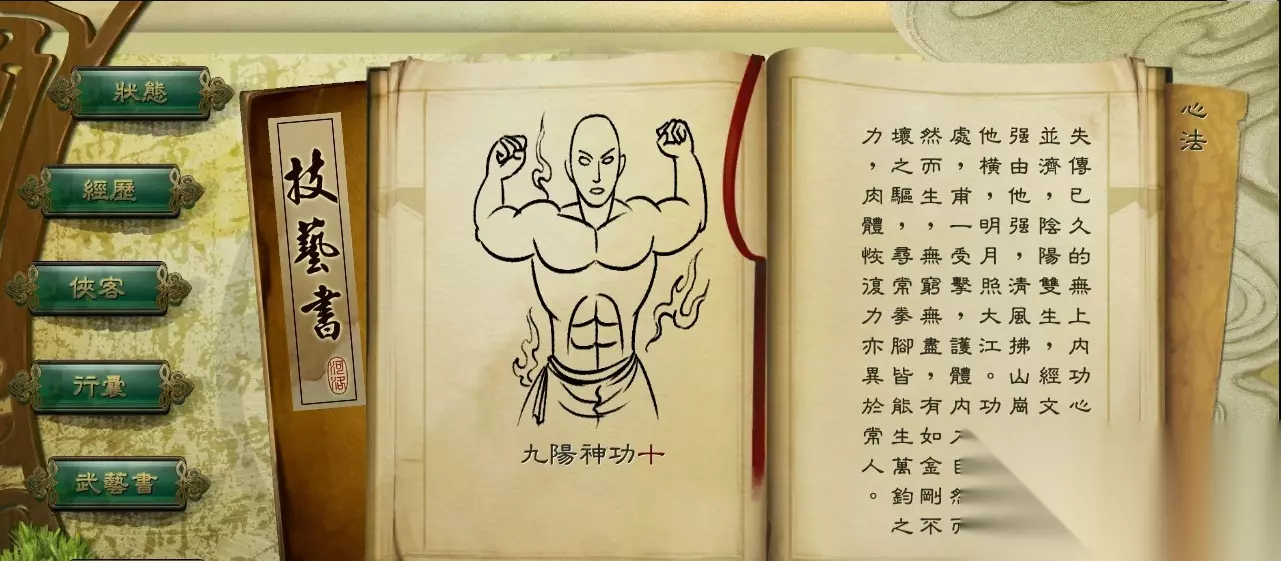 狀態
經歷
俠客
行囊
武藝書
技藝書
河洛
九陽神功十
心法
失傳已久的無上內功心
並濟，陰陽雙生，經文
强由他强，清風拂山崗
他橫，明月照大江。功
處，甫一受擊，護體內
然而生，無窮無盡，有如金剛不
壞之驅，尋常拳腳皆能生萬鈞之
力，肉體恢復力亦異於常人。